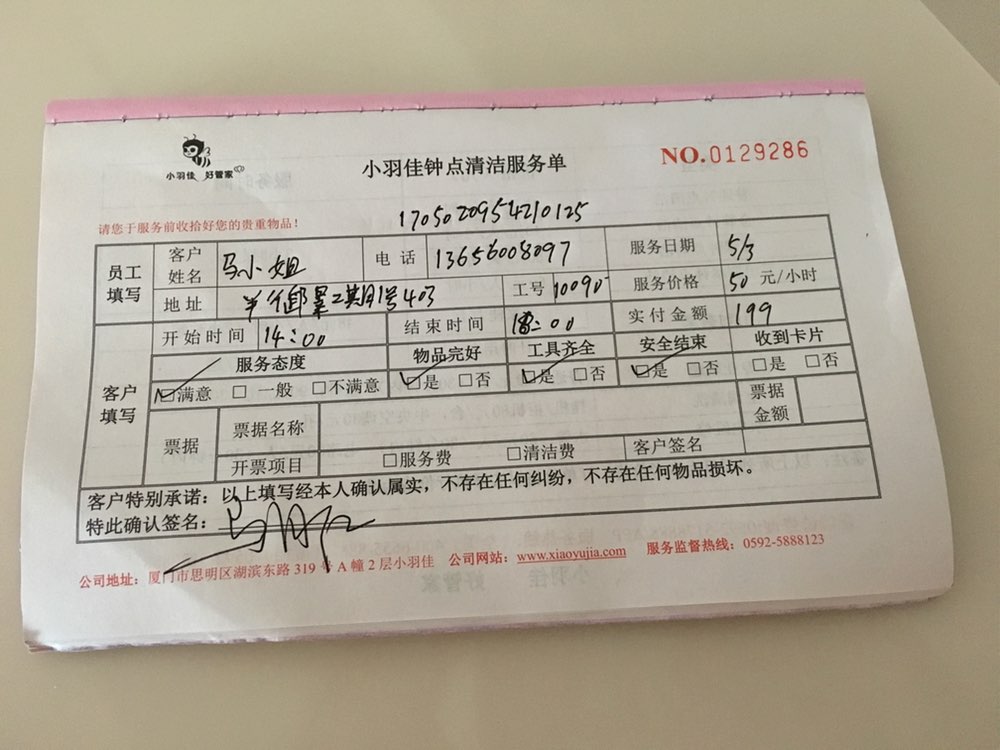 小羽佳 好管家
小羽佳钟点清洁服务单
NO.0129286
请您于服务前收拾好您的贵重物品！
1705020954210125
员工填写 客户姓名 马小姐 电话 13656008097 服务日期 5/3
地址 号403 工号 10090 服务价格 50 元/小时
客户填写 开始时间 14:00 结束时间 :00 实付金额 199
服务态度 物品完好 工具齐全 安全结束 收到卡片
□满意 □ 一般 □不满意 □是 □否 □是 □否 □是 □否 □是 □否
票据 票据名称 票据金额
开票项目 □服务费 □清洁费 客户签名
客户特别承诺：以上填写经本人确认属实，不存在任何纠纷，不存在任何物品损坏。
特此确认签名：马
公司地址：厦门市思明区湖滨东路 319 号 A 幢 2 层小羽佳 公司网站：www.xiaoyujia.com 服务监督热线：0592-5888123